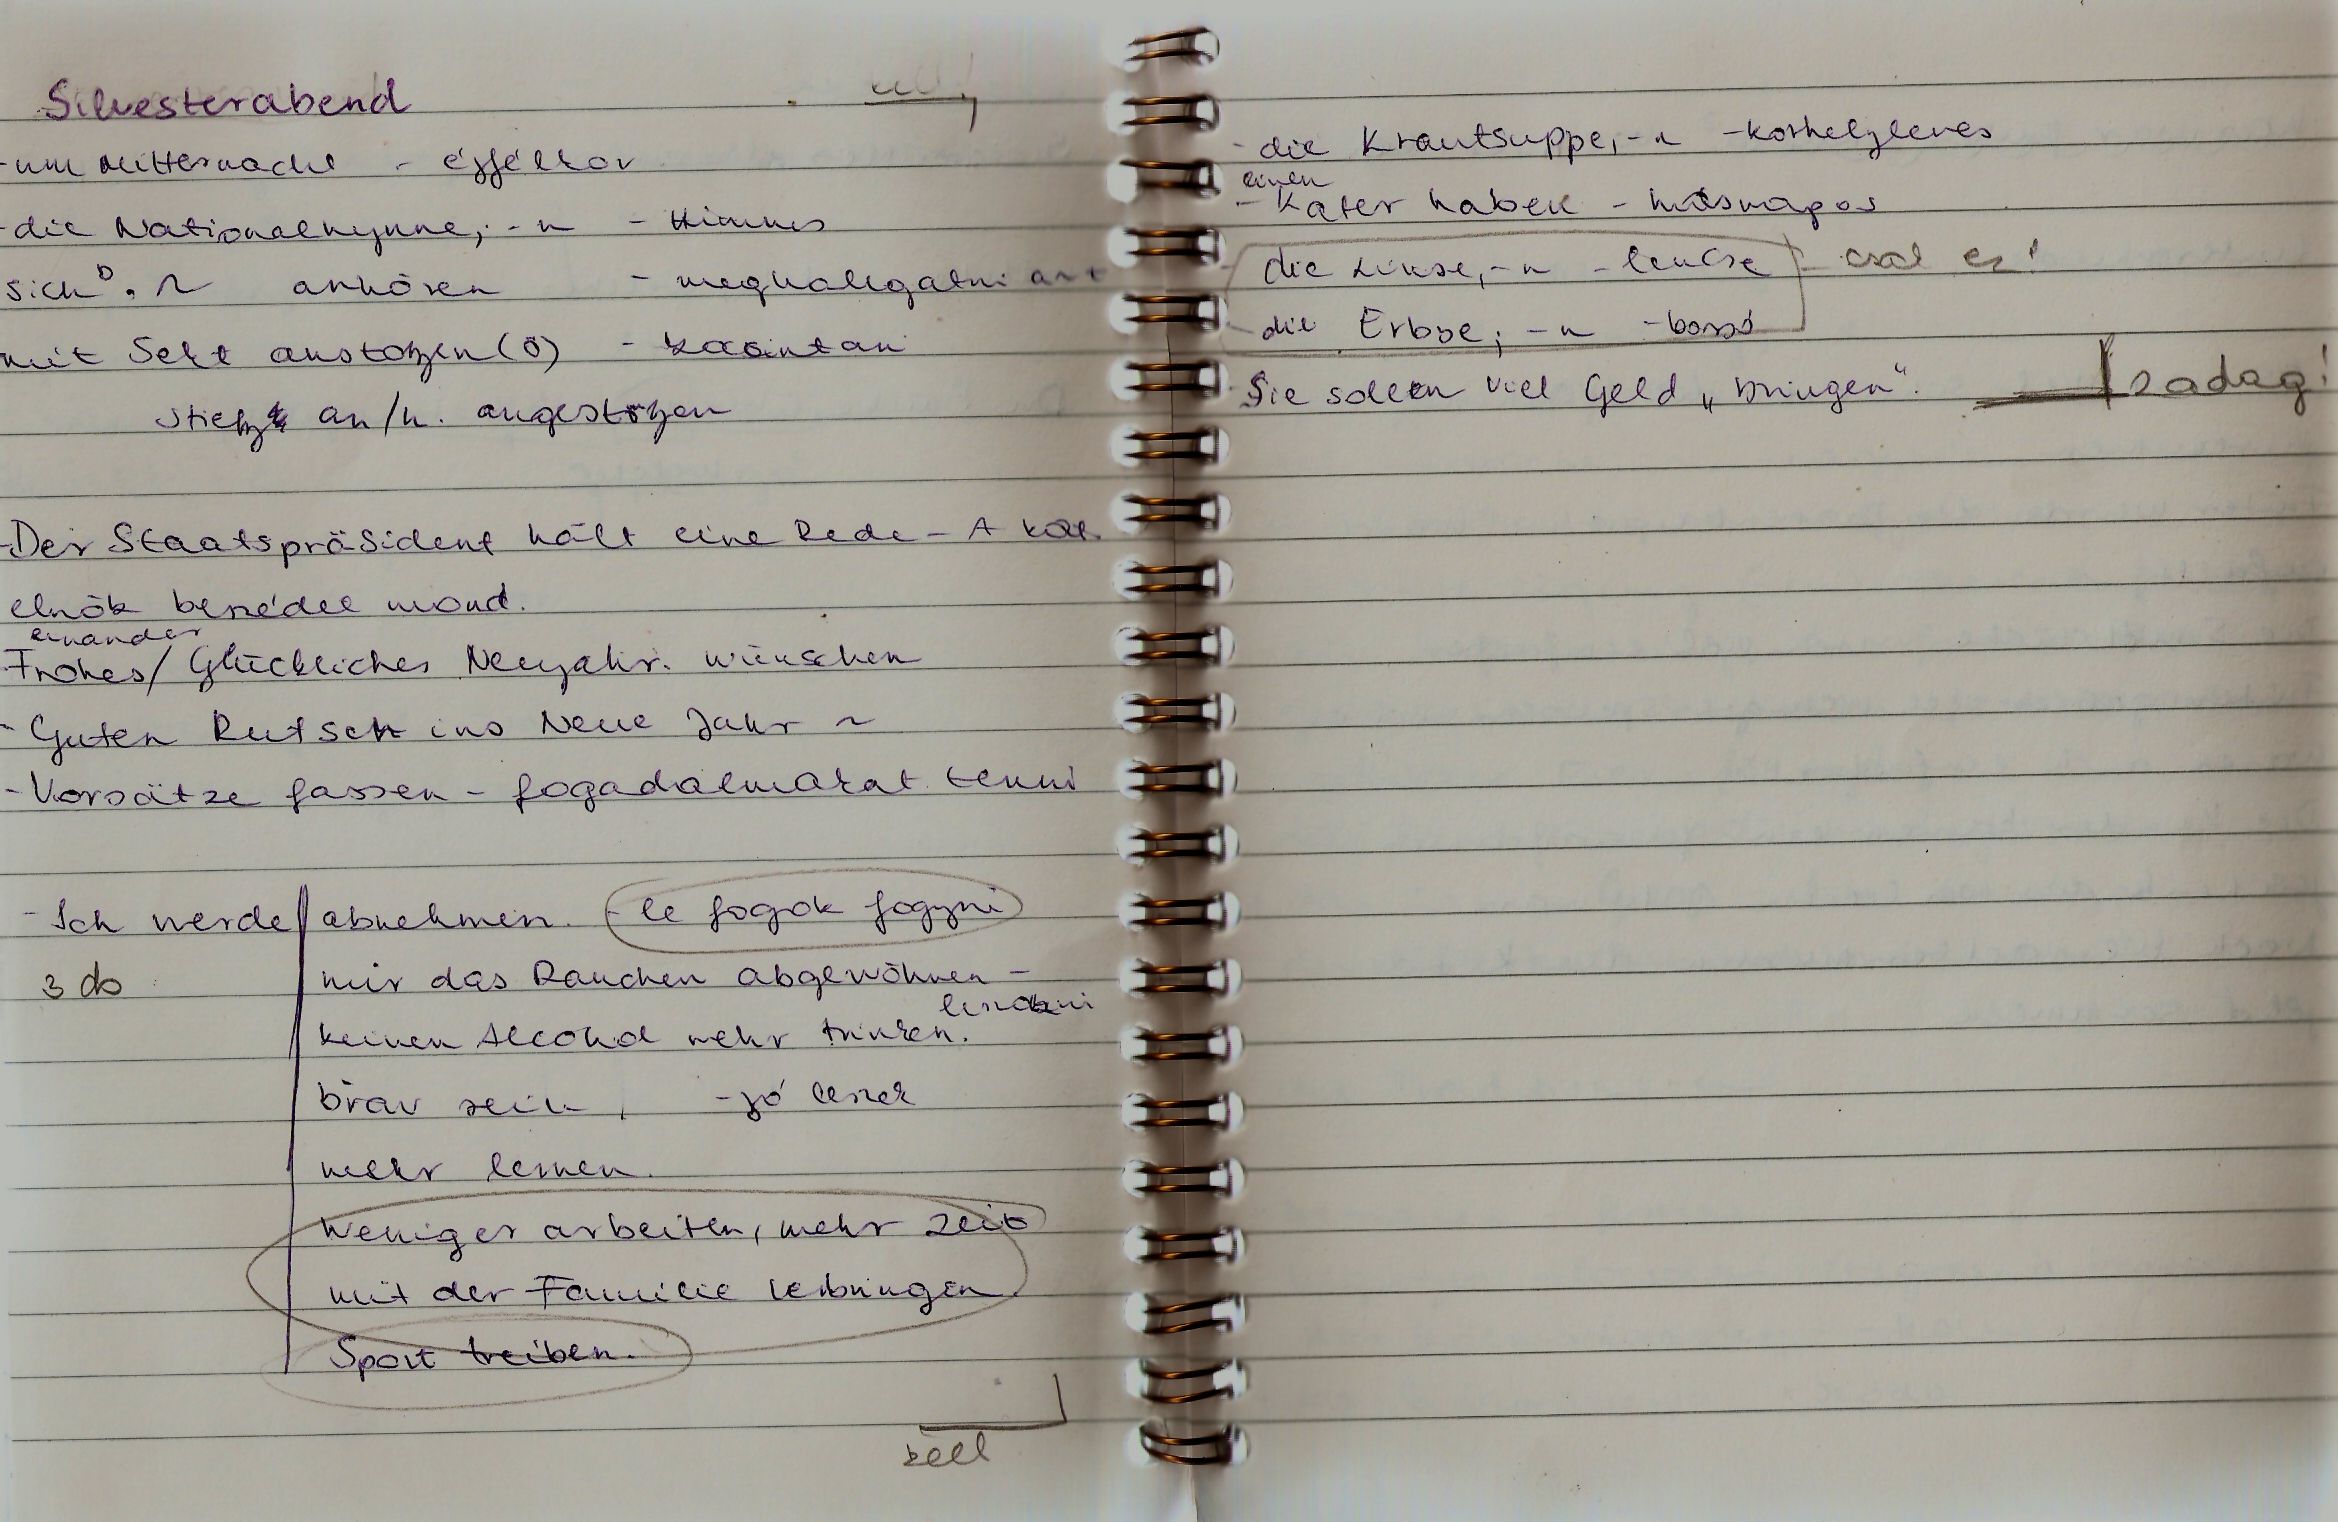 Silvesterabend
- um Mitternacht - éjfélkor
- die Nationalhymne, -n - Himnus
sich D. ~ anhören - meghallgatni
mit Sekt anstoßen (ö) - koccintani
stieß an/h. angestoßen
- Der Staatspräsident hält eine Rede - A közt.
elnök beszédet mond.
einander
Frohes/Glückliches Neujahr. wünschen
- Guten Rutsch ins Neue Jahr ~
- Vorsätze fassen - fogadalmakat tenni
- Ich werde abnehmen. - le fogok fogyni
3 db mir das Rauchen abgewöhnen -
leszokni
keinen Alcohol mehr trinken.
brav sein, - jó leszek
mehr lernen.
Weniger arbeiten, mehr Zeit
mit der Familie verbringen.
Sport treiben.
kell
- die Krautsuppe, -n - korhelyleves
einen
- Kater haben - másnapos
- die Linse, -n - lencse - csak ez!
die Erbse, -n - borsó
Sie sollen viel Geld „bringen“.